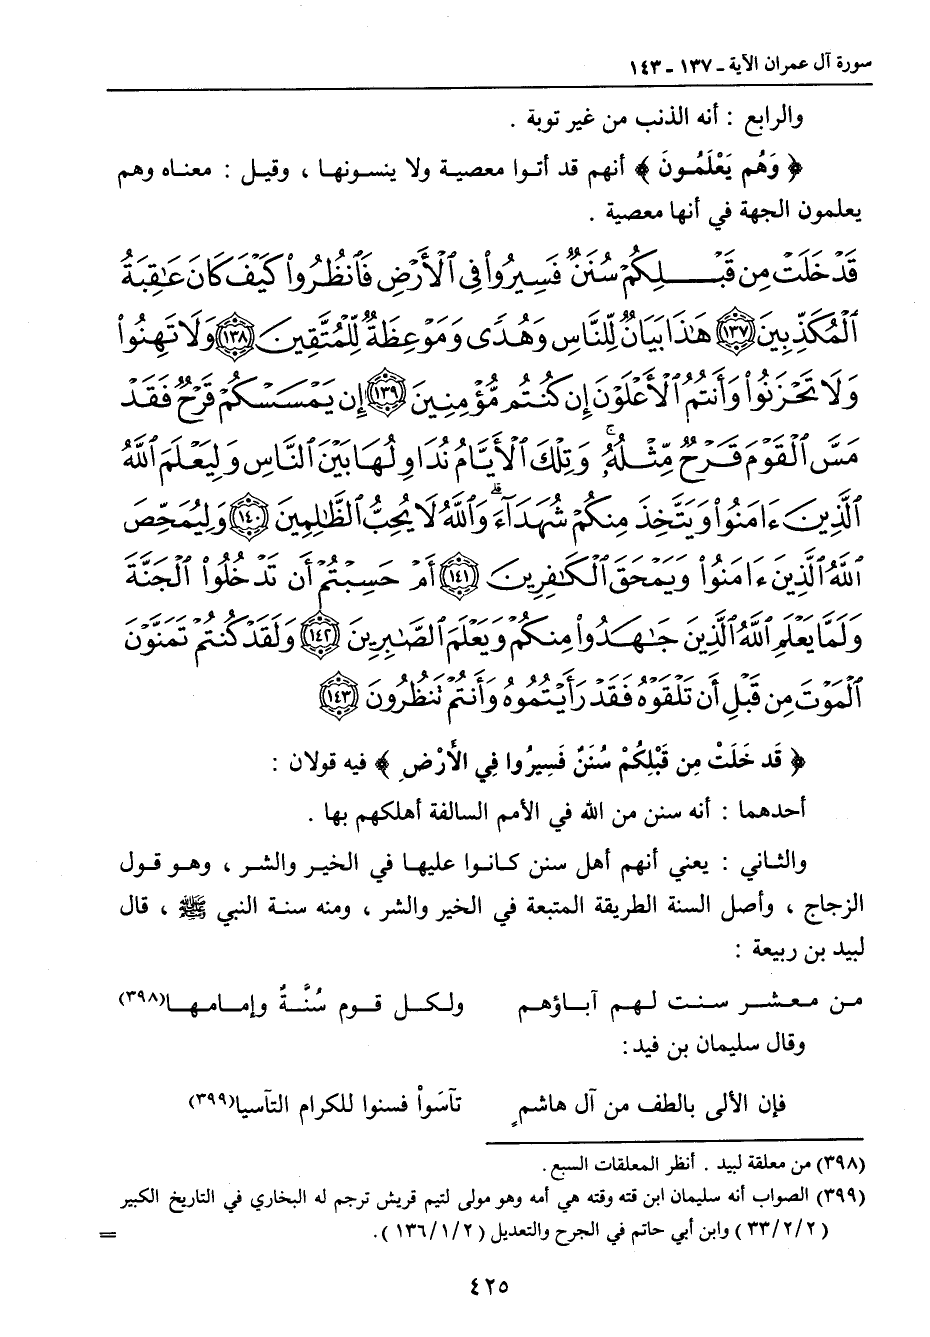 سورة آل عمران الآية ـ ١٣٧ ـ ١٤٣
والرابع : أنه الذنب من غير توبة .
﴿ وَهُم يَعْلَمُونَ ﴾ أنهم قد أتوا معصية ولا ينسونها ، وقيل : معناه وهم
يعلمون الجهة في أنها معصية .
قَدْ خَلَتْ مِن قَبْلِكُمْ سُنَنٌ فَسِيرُوا۟ فِى ٱلْأَرْضِ فَٱنظُرُوا۟ كَيْفَ كَانَ عَـٰقِبَةُ
ٱلْمُكَذِّبِينَ ١٣٧ هَـٰذَا بَيَانٌ لِّلنَّاسِ وَهُدًى وَمَوْعِظَةٌ لِّلْمُتَّقِينَ ١٣٨ وَلَا تَهِنُوا۟
وَلَا تَحْزَنُوا۟ وَأَنتُمُ ٱلْأَعْلَوْنَ إِن كُنتُم مُّؤْمِنِينَ ١٣٩ إِن يَمْسَسْكُمْ قَرْحٌ فَقَدْ
مَسَّ ٱلْقَوْمَ قَرْحٌ مِّثْلُهُۥ ۚ وَتِلْكَ ٱلْأَيَّامُ نُدَاوِلُهَا بَيْنَ ٱلنَّاسِ وَلِيَعْلَمَ ٱللَّهُ
ٱلَّذِينَ ءَامَنُوا۟ وَيَتَّخِذَ مِنكُمْ شُهَدَآءَ ۗ وَٱللَّهُ لَا يُحِبُّ ٱلظَّـٰلِمِينَ ١٤٠ وَلِيُمَحِّصَ
ٱللَّهُ ٱلَّذِينَ ءَامَنُوا۟ وَيَمْحَقَ ٱلْكَـٰفِرِينَ ١٤١ أَمْ حَسِبْتُمْ أَن تَدْخُلُوا۟ ٱلْجَنَّةَ
وَلَمَّا يَعْلَمِ ٱللَّهُ ٱلَّذِينَ جَـٰهَدُوا۟ مِنكُمْ وَيَعْلَمَ ٱلصَّـٰبِرِينَ ١٤٢ وَلَقَدْ كُنتُمْ تَمَنَّوْنَ
ٱلْمَوْتَ مِن قَبْلِ أَن تَلْقَوْهُ فَقَدْ رَأَيْتُمُوهُ وَأَنتُمْ تَنظُرُونَ ١٤٣
﴿ قَد خَلَتْ مِن قَبْلِكُمْ سُنَنٌ فَسِيرُوا فِي الأَرْضِ ﴾ فيه قولان :
أحدهما : أنه سنن من الله في الأمم السالفة أهلكهم بها .
والثاني : يعني أنهم أهل سنن كانوا عليها في الخير والشر ، وهو قول
الزجاج ، وأصل السنة الطريقة المتبعة في الخير والشر ، ومنه سنة النبي ﷺ ، قال
لبيد بن ربيعة :
من معشر سنت لهم آباؤهم ولكل قوم سُنَّةٌ وإمامها(٣٩٨)
وقال سليمان بن فيد :
فإن الألى بالطف من آل هاشمٍ تآسَواْ فسنوا للكرام التآسيا(٣٩٩)
(٣٩٨) من معلقة لبيد . أنظر المعلقات السبع .
(٣٩٩) الصواب أنه سليمان ابن قته وقته هي أمه وهو مولى لتيم قريش ترجم له البخاري في التاريخ الكبير
( ٣٣/٢/٢ ) وابن أبي حاتم في الجرح والتعديل ( ١٣٦/١/٢ ) . =
٤٢٥